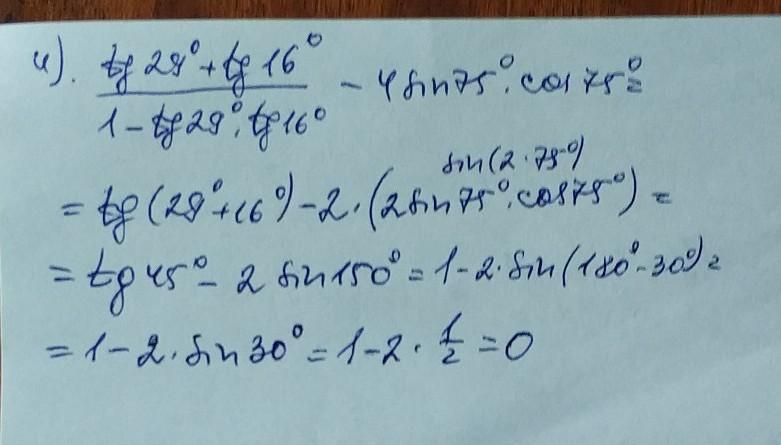 и). (tg 29° + tg 16°) / (1 - tg 29° · tg 16°) - 4 sin 75° · cos 75° =
sin(2·75°)
= tg (29° + 16°) - 2 · (2 sin 75° · cos 75°) =
= tg 45° - 2 sin 150° = 1 - 2 · sin (180° - 30°) =
= 1 - 2 · sin 30° = 1 - 2 · 1/2 = 0